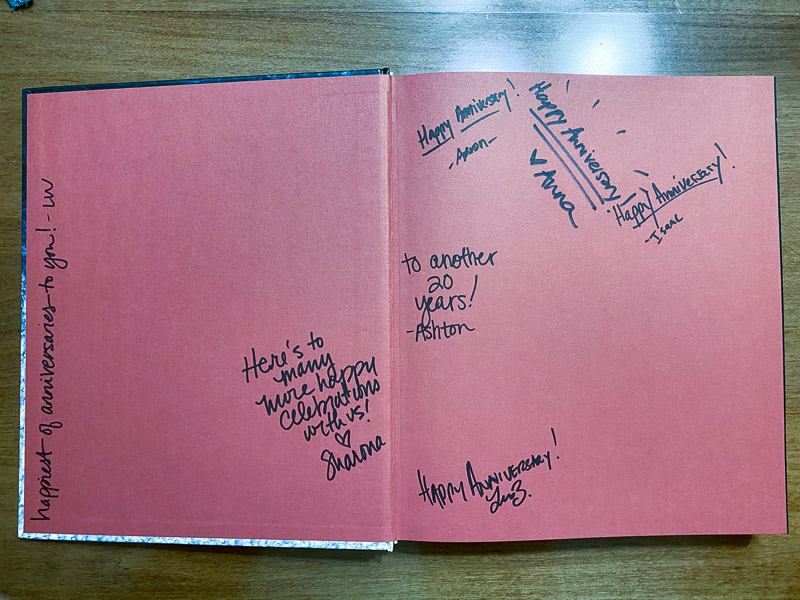 happiest of anniversaries to you! - LW
Here's to
many
more happy
celebrations
with us!
♡
Sharona
Happy Anniversary!
-Aaron-
Happy Anniversary
♥ Anna
Happy Anniversary!
-Isaac
to another
20
years!
-Ashton
Happy Anniversary!